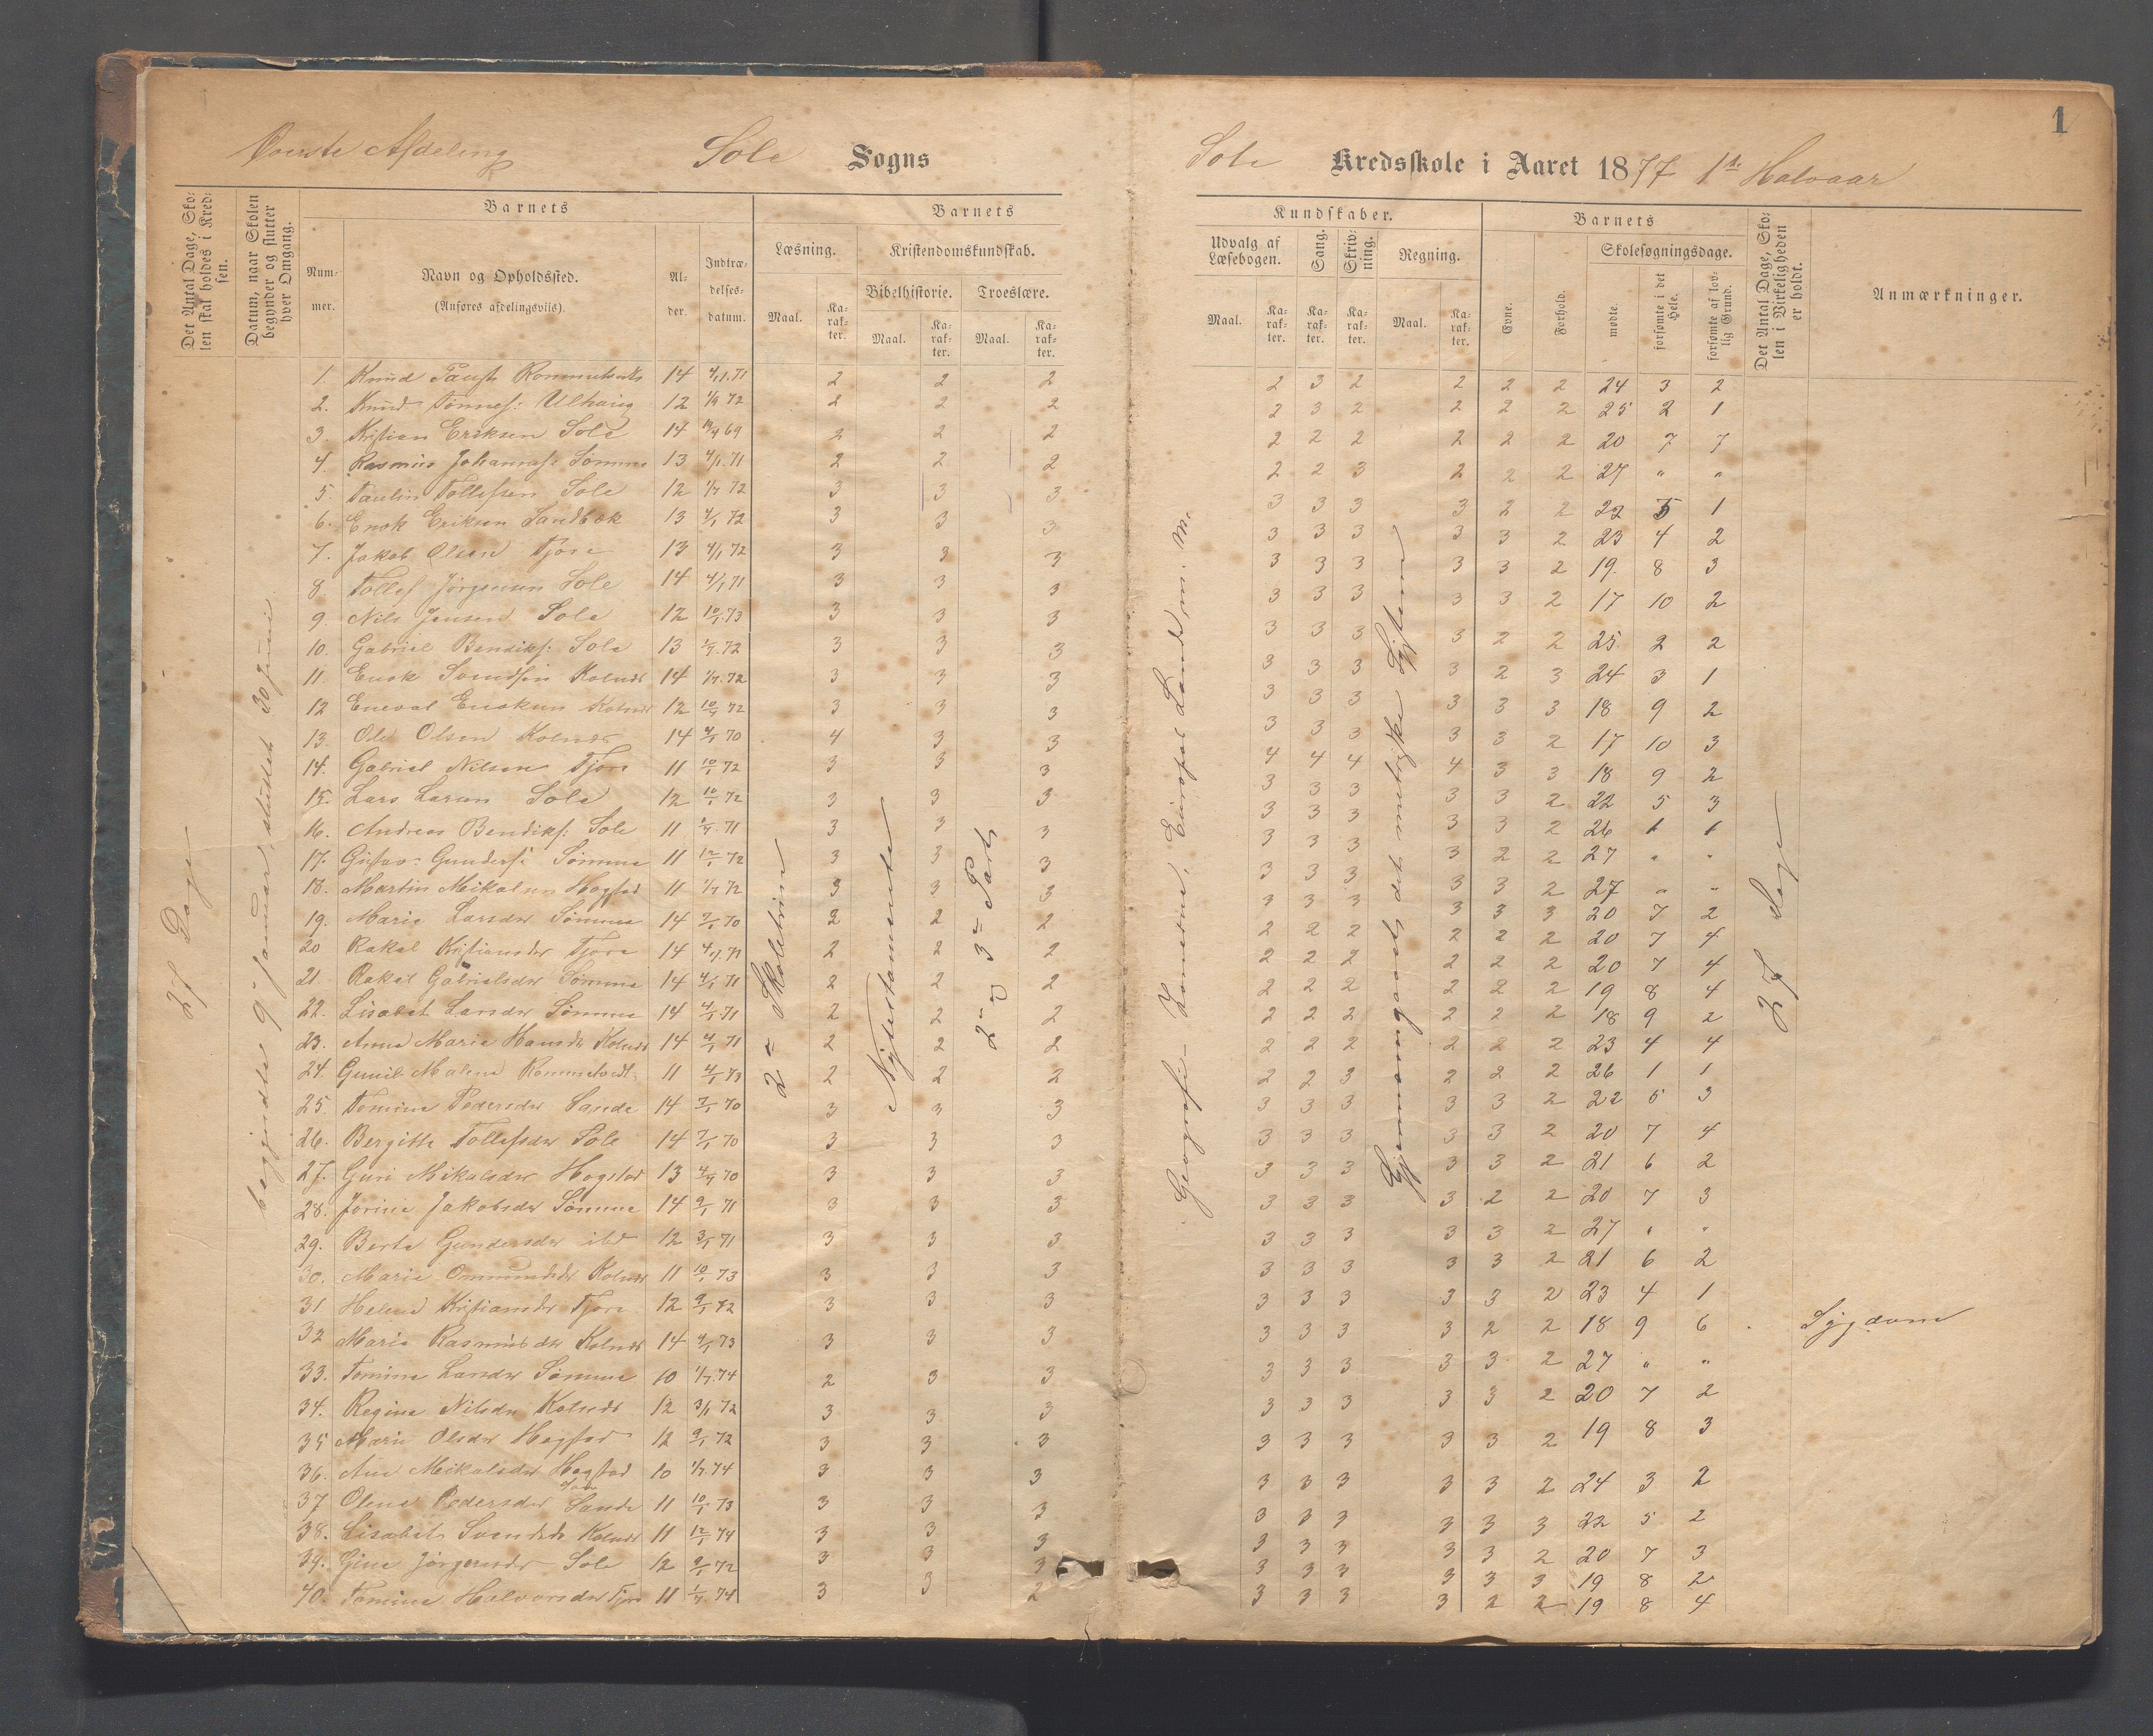 1
Øverste Afdeling Sole Sogns
Sole Kredsskole i Aaret 1877 1ste Halvaar
Det Antal Dage, Skolen skal holdes i Kredsen.
Datum, naar Skolen begynder og slutter hver Omgang.
Barnets
Nummer.
Navn og Opholdssted.
(Anføres afdelingsviis).
Alder.
Indtrædelsesdatum.
Barnets
Læsning.
Kristendomskundskab.
Bibelhistorie. Troeslære.
Maal. Karakter. Maal. Karakter. Maal. Karakter.
Kundskaber.
Udvalg af Læsebogen.
Sang.
Skrivning.
Regning.
Maal. Karakter. Karakter. Karakter. Maal. Karakter.
Barnets
Evne.
Forhold.
Skolesøgningsdage.
mødte.
forsømte i det Hele.
forsømte af lovlig Grund.
Det Antal Dage, Skolen i Virkeligheden er holdt.
Anmærkninger.
27 Dage
begyndte 9de Januar, sluttet 30 Juni
2det Skoletrin
Nytestamente
2det og 3die Part
Geografi - Zonerne, Europas Lande m. m.
Gjennemgaaet det metriske System
27 Dage
1. Knud 14 4/1.71 2 2 2 2 3 2 2 2 2 24 3 2
2. Knud Tønnes: Ulhaug 12 1/9 72 2 2 2 2 3 2 2 2 2 25 2 1
3. Kristian Eriksen Sole 14 69 2 2 2 2 2 2 2 2 2 20 7 7
4. Rasmus Johannes: Sømme 13 4/1.71 2 2 2 2 2 3 2 2 2 27 " "
5. Paulin Tollefsen Sole 12 1/7 72 3 3 3 3 3 3 3 2 2 22 5 1
6. Enok Eriksen Sandbæk 13 4/1 72 3 3 3 3 3 3 3 3 2 23 4 2
7. Jakob Olsen Tjora 13 4/1 72 3 3 3 3 3 3 3 3 2 19. 8 3
8 Tollef Jørgensen Sole 14 4/1 71 3 3 3 3 3 3 3 3 2 17 10 2
9. Nils Jensen Sole 12 10/1.73 3 3 3 3 3 3 3 2 2 25. 2 2
10. Gabriel Bendiks: Sole 13 1/7.72 3 3 3 3 3 3 3 2 3 24 3 1
11. Enok Svendsen Kolnes 14 1/7.72 3 3 3 3 3 3 3 3 3 18 9 2
12 Eneval Enoksen Kolnes 12 72 3 3 3 3 3 3 3 3 2 17 10 3
13. Ole Olsen Kolnes 14 70 4 3 3 4 4 4 4 3 3 18 9 2
14. Gabriel Nilsen Tjora 11 10/1 72 3 3 3 3 3 3 3 3 2 22 5 3
15. Lars Larsen Sole 12 10/1 72 3 3 3 3 3 3 3 3 2 26 1 1
16. Andreas Bendiks: Sole 11 1/7.71 3 3 3 3 3 3 3 2 2 27 " "
17. Gustav Gunders: Sømme 11 12/1 72 3 3 3 3 3 3 3 3 2 27 " "
18. Martin Mikalsen Hogstad 11 1/7 72 3 3 3 3 3 3 3 3 3 20 7 2
19. Marie Larsdr Sømme 14 7/1 70 2 2 2 2 2 2 2 2 2 20 7 4
20 Rakel Kristiansdr Tjora 14 4/1.71 2 2 2 2 2 2 2 2 2 20 7 4
21. Rakel Gabrielsdr Sømme 14 4/1 71 2 2 2 2 2 2 2 2 2 19 8 4
22. Lisabet Larsdr Sømme 14 4/1.71 2 2 2 2 2 2 2 2 2 18 9 2
23. Anna Maria Hansdr Kolnes 14 4/1 71 2 2 2 2 2 2 2 2 2 23 4 4
24. Gunil Malene Rommetvedt 11 4/1 73 2 2 2 2 2 3 2 2 2 26 1 1
25. Tomine Pedersdr Sande 14 7/1 70 3 3 3 3 3 3 3 3 2 22 5 3
26. Bergitte Tollefsdr Sole 14 7/1 70 3 3 3 3 3 3 3 3 2 20 7 4
27. Guri Mikalsdr Hogstad 13 70 3 3 3 3 3 3 3 3 2 21 6 2
28. Jorine Jakobsdr Sømme 14 9/1 71 3 3 3 3 3 3 3 2 2 20 7 3
29. Berta Gundersdr ibd 12 3/1 71 3 3 3 3 3 3 3 3 2 27 " "
30. Marie Ommundsdr Kolnes 11 10/1 73 3 3 3 3 3 3 3 3 2 21 6 2
31 Helene Kristiansdr Tjora 12 9/1 72 3 3 3 3 3 3 3 3 2 23 4 1
32 Maria Rasmusdr Kolnes 14 73 3 3 3 3 3 3 3 2 2 18 9 6 Sygdom
33. Tomine Larsdr Sømme 10 1/7.74 2 3 3 3 3 3 3 3 2 27 " "
34. Regine Nilsdr Kolnes 12 3/1 72 3 3 3 3 3 3 3 3 2 20 7 2
35 Marie Olsdr Hogstad 12 9/1 72 3 3 3 3 3 3 3 3 2 19 8 3
36. Ane Mikalsdr Hogstad 10 1/7.74 3 3 3 3 3 3 3 3 2 24 3 2
37 Olene Pedersdr Sande 11 10/1 73 3 3 3 3 3 3 3 3 3 22 5 2
38. Lisabet Svendsdr Kolnes 11 12/1 74 3 3 3 3 3 3 3 3 2 20 7 3
39. Gine Jørgensdr Sole 12 9/1 72 3 3 3 3 3 3 3 3 3 19 8 2
40. Tomine Halvorsdr Tjora 11 1/7.74 3 3 2 3 3 3 3 2 2 19 8 4